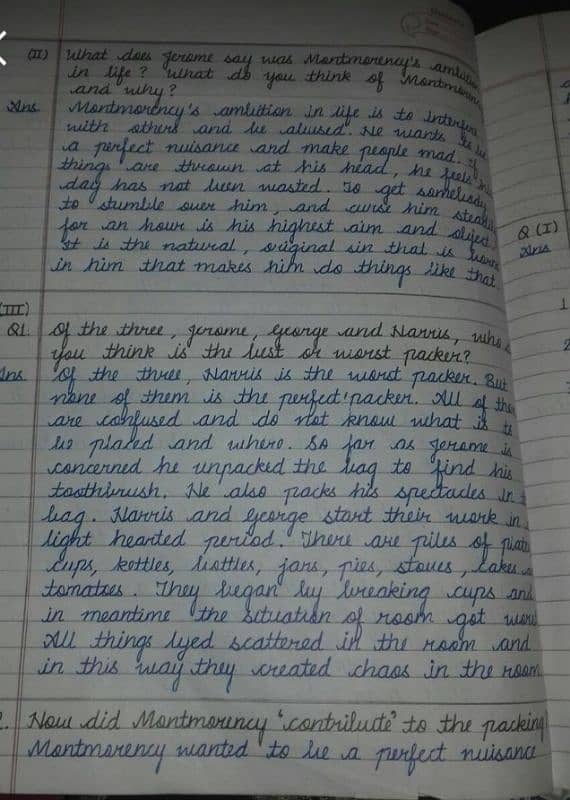 (II) What does Jerome say was Montmorency's
in life? What do you think of
and why?
Ans Montmorency's ambition in life is to
with others and be abused. He wants to be
a perfect nuisance and make people mad. If
things are thrown at his head, he feels his
day has not been wasted. To get somebody
to stumble over him, and curse him
for an hour is his highest aim and object.
It is the natural, original sin that is
in him that makes him do things like that
Q (I)
Ans
(III)
Q1. Of the three, Jerome, George and Harris, who
you think is the best or worst packer?
Ans. Of the three, Harris is the worst packer. But
none of them is the perfect packer. All of
are confused and do not know what is to
be placed and where. So far as Jerome is
concerned he unpacked the bag to find his
toothbrush. He also packs his spectacles in
bag. Harris and George start their work in
light hearted period. There are piles of
cups, kettles, bottles, jars, pies, stoves, cakes
tomatoes. They began by breaking cups and
in meantime the situation of room got
All things lyed scattered in the room and
in this way they created chaos in the room.
2. How did Montmorency 'contribute' to the packing
Montmorency wanted to be a perfect nuisance